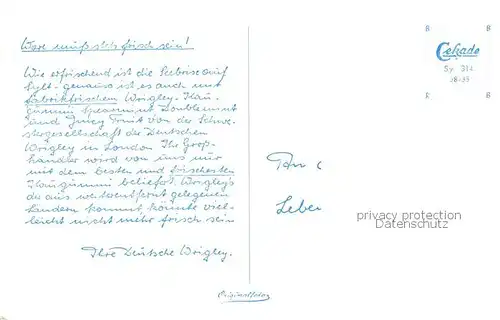 Ware muß stets frisch sein!
Wie erfrischend ist die Seebrise auf
Sylt - genauso ist es auch mit
fabrikfrischem Wrigley-Kau-
gummi Spearmint Doublemint
und Juicy Fruit von der Schwe-
stergesellschaft der Deutschen
Wrigley in London Ihr Groß-
händler wird von uns nur
mit dem besten und frischesten
Kaugummi beliefert. Wrigleys
das aus weit entfernt gelegenen
Ländern kommt könnte viel-
leicht nicht mehr frisch sein
Ihre Deutsche Wrigley.
Cekade
Sy. 314
An
Leben
privacy protection
Datenschutz
Originalfoto